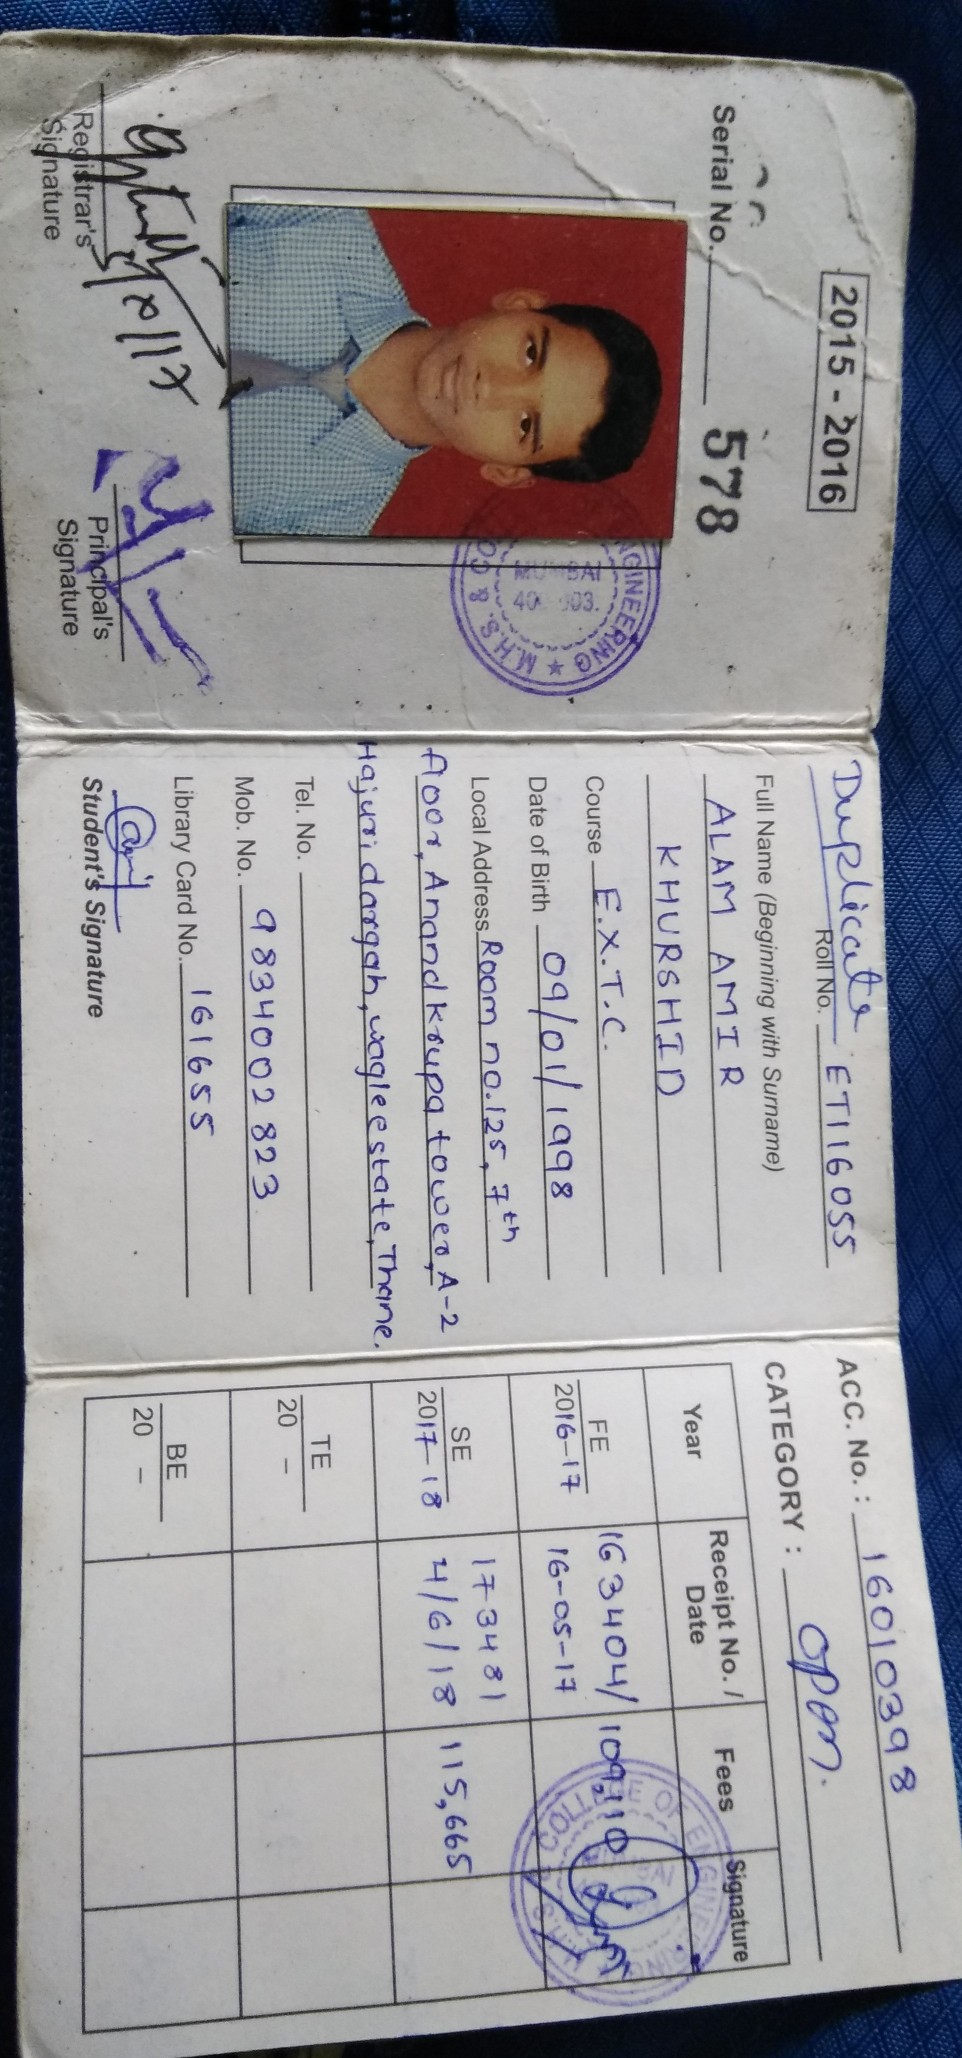 2015 - 2016
Serial No. 578
COLLEGE OF ENGINEERING ★ M.H.S.S.
MUMBAI
Registrar's
Signature
Principal's
Signature
Duplicate
Roll No. ET116055
Full Name (Beginning with Surname)
ALAM AMIR
KHURSHID
Course E.X.T.C.
Date of Birth 09/01/1998
Local Address Room no.125, 7th
floor, Anandkrupa tower, A-2
Hajuri dargah, wagle estate, Thane.
Tel. No.
Mob. No. 9834002823
Library Card No. 161655
Student's Signature
ACC. No. : 16010398
CATEGORY : open.
Year Receipt No. / Date Fees Signature
FE 2016-17 163404/ 16-05-17 109,110
SE 2017-18 173481 4/6/18 115,665
TE 20 –
BE 20 –
COLLEGE OF ENGINEERING